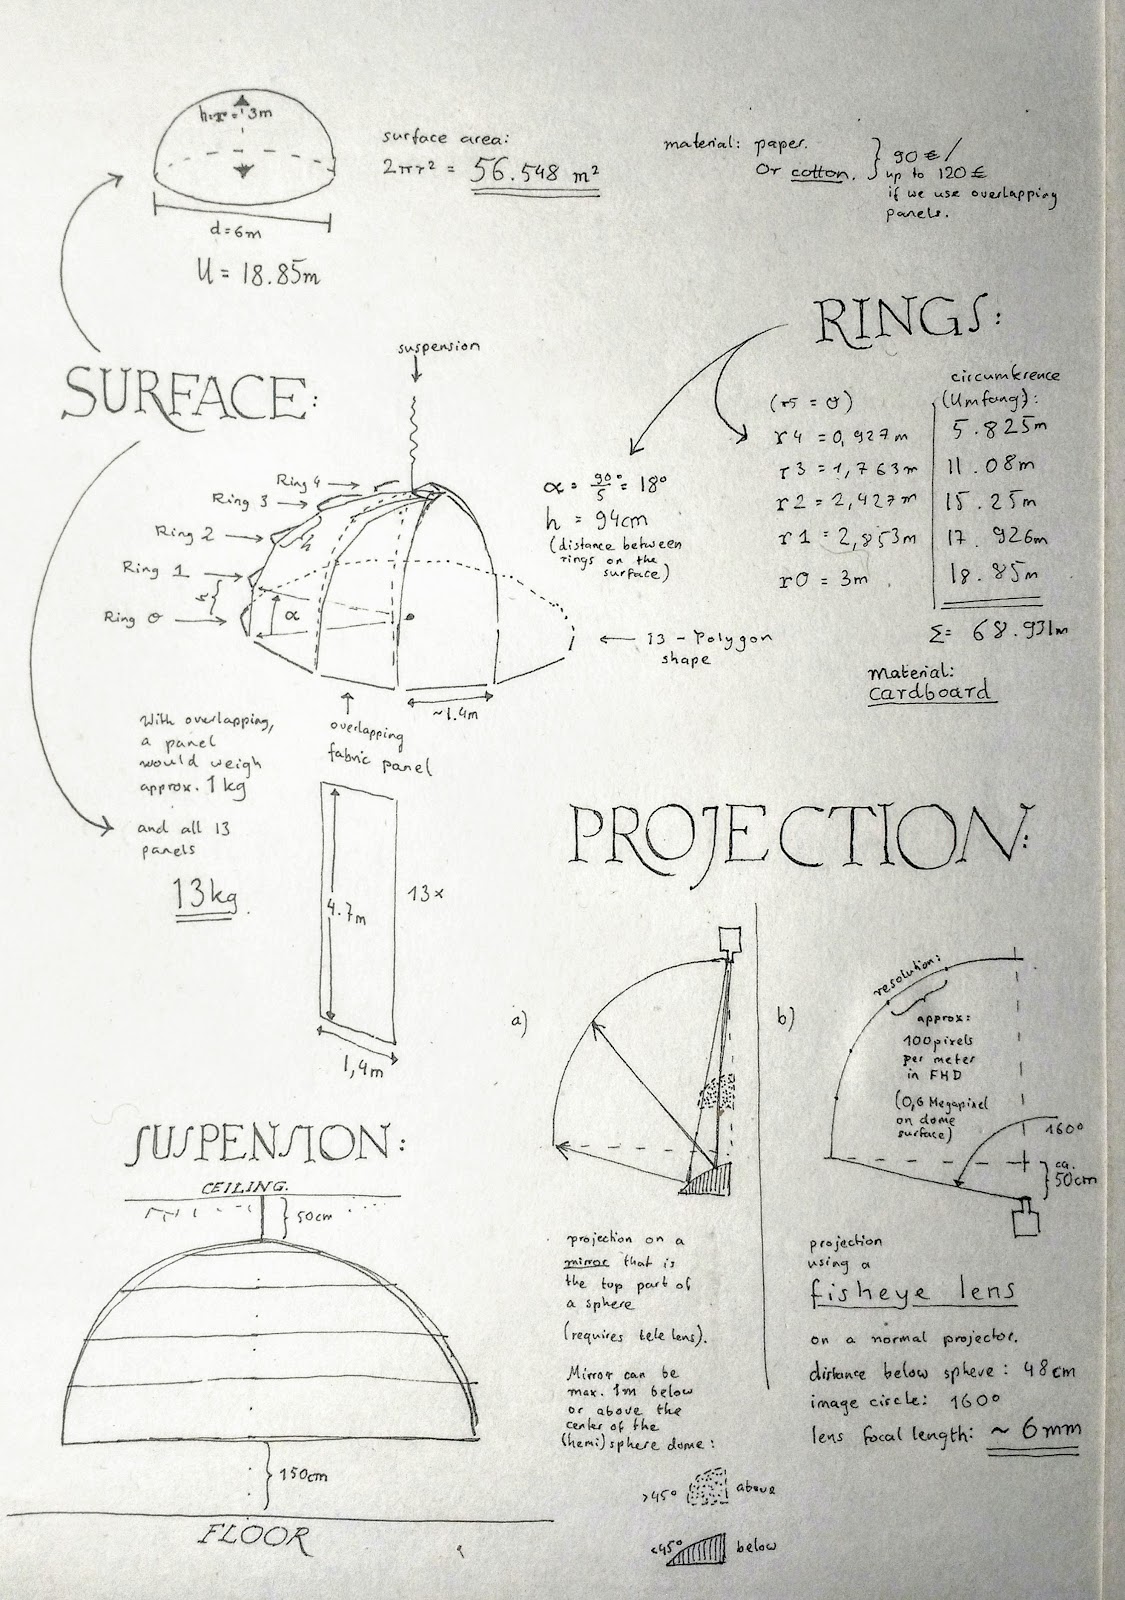 h=r= 3m
d=6m
U = 18.85m
surface area:
2πr² = 56.548 m²
material: paper.
Or cotton.
90 € /
up to 120 €
if we use overlapping
panels.
SURFACE:
suspension
Ring 4
Ring 3
Ring 2
Ring 1
Ring 0
h
r
α
~1.4m
13 - Polygon
shape
overlapping
fabric panel
With overlapping,
a panel
would weigh
approx. 1 kg
and all 13
panels
13kg.
4.7m
13x
1,4m
RINGS:
α = 90°/5 = 18°
h = 94cm
(distance between
rings on the
surface)
circumference
(Umfang):
(r5 = 0)
r4 = 0,927m 5.825m
r3 = 1,763m 11.08m
r2 = 2,427m 15.25m
r1 = 2,853m 17.926m
r0 = 3m 18.85m
Σ= 68.931m
Material:
cardboard
PROJECTION:
a)
projection on a
mirror that is
the top part of
a sphere
(requires tele lens).
Mirror can be
max. 1m below
or above the
center of the
(hemi)sphere dome:
>45° above
<45° below
b)
resolution:
approx:
100 pixels
per meter
in FHD
(0,6 Megapixel
on dome
surface)
160°
ca.
50cm
projection
using a
fisheye lens
on a normal projector.
distance below sphere: 48cm
image circle: 160°
lens focal length: ~ 6mm
SUSPENSION:
CEILING.
50cm
150cm
FLOOR